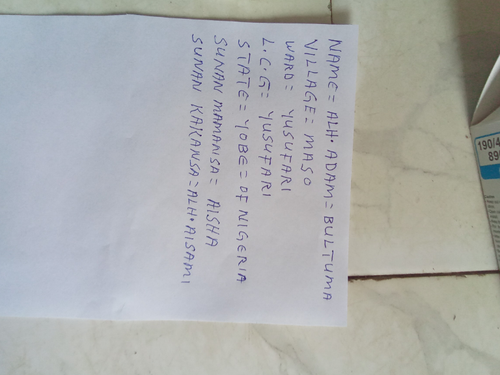 NAME= ALH. ADAM= BULTUMA
VILLAGE= MASO
WARD= YUSUFARI
L.C.G= YUSUFARI
STATE= YOBE= OF NIGERIA
SUNAN MAMANSA= AISHA
SUNAN KAKANSA=ALH.AISAMI
190/4